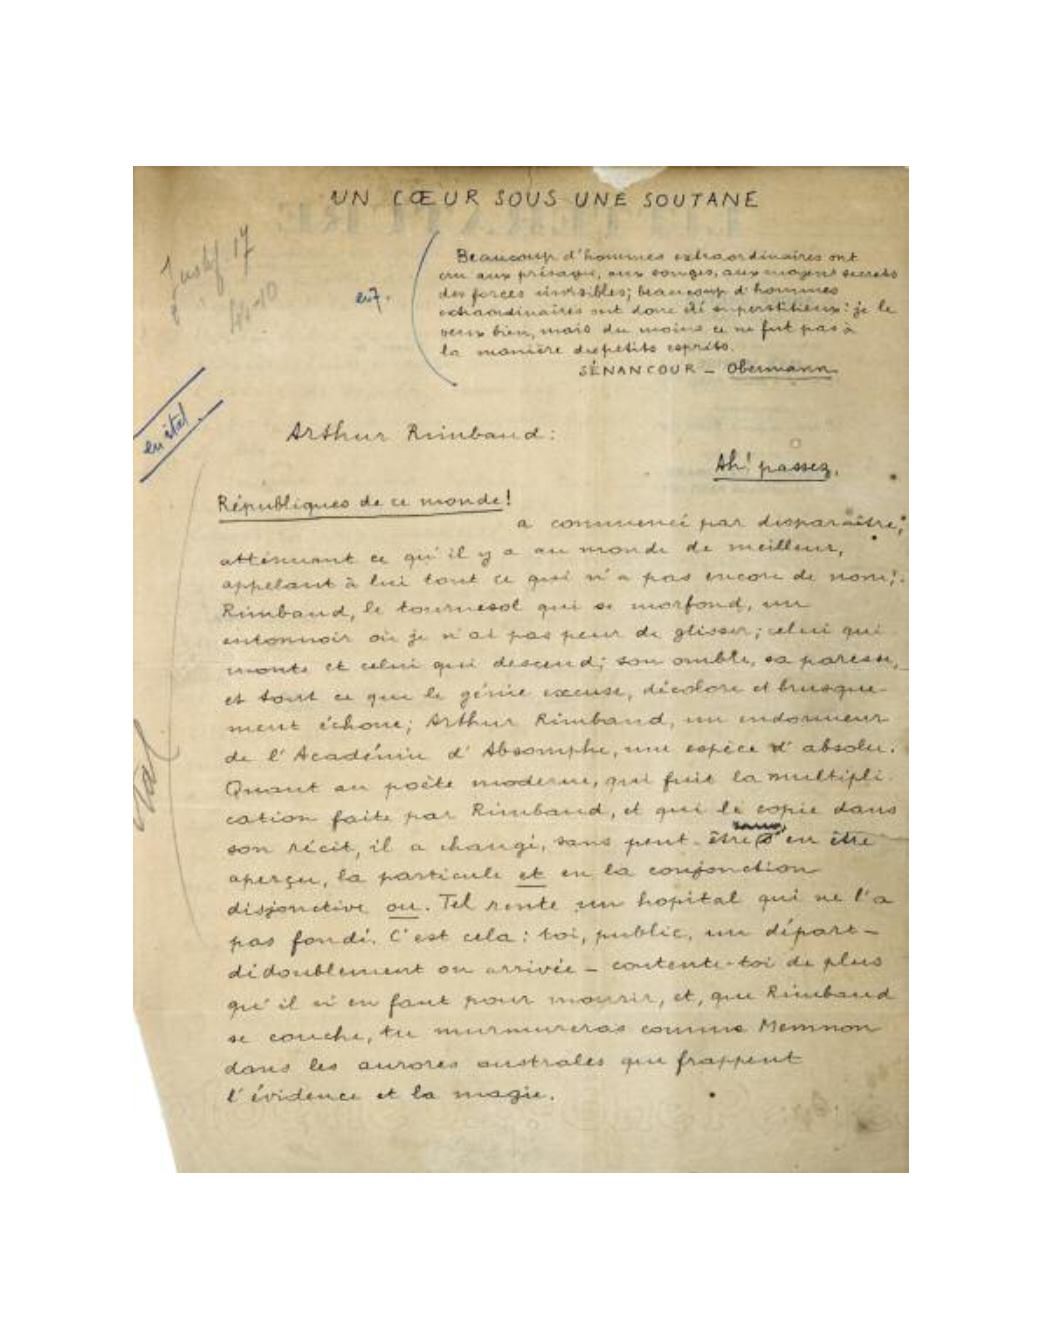 UN CŒUR SOUS UNE SOUTANE
Justif 17
en 7.
Beaucoup d'hommes extraordinaires ont
cru aux présages, aux songes, aux moyens secrets
des forces invisibles; beaucoup d'hommes
extraordinaires ont donc été superstitieux: je le
veux bien, mais du moins ce ne fut pas à
la manière des petits esprits.
SÉNANCOUR _ Obermann
en ital
Arthur Rimbaud:
Ah! passez,
Républiques de ce monde!
a commencé par disparaître,
atténuant ce qu'il y a au monde de meilleur,
appelant à lui tout ce qui n'a pas encore de nom;
Rimbaud, le tournesol qui se morfond, un
entonnoir où je n'ai pas peur de glisser; celui qui
monte et celui qui descend; son omble, sa paresse,
et tout ce que le génie excuse, décolore et brusque-
ment échoue; Arthur Rimbaud, un endormeur
de l'Académie d'Absomphe, une espèce d'absolu.
Quant au poète moderne, qui fuit la multipli-
cation faite par Rimbaud, et qui le copie dans
son récit, il a changé, sans peut-être s'en être
aperçu, la particule et en la conjonction
disjonctive ou. Tel rente un hopital qui ne l'a
pas fondé. C'est cela: toi, public, un départ _
dédoublement ou arrivée _ contente-toi de plus
qu'il n'en faut pour mourir, et, que Rimbaud
se couche, tu murmureras comme Memnon
dans les aurores australes que frappent
l'évidence et la magie.
ital